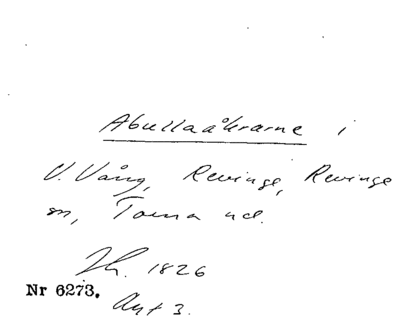 Abullaåkrarne i
V. Vång, Revinge, Revinge
sn, Torna hd.
Sk. 1826
Nr 6273. Akt 3.